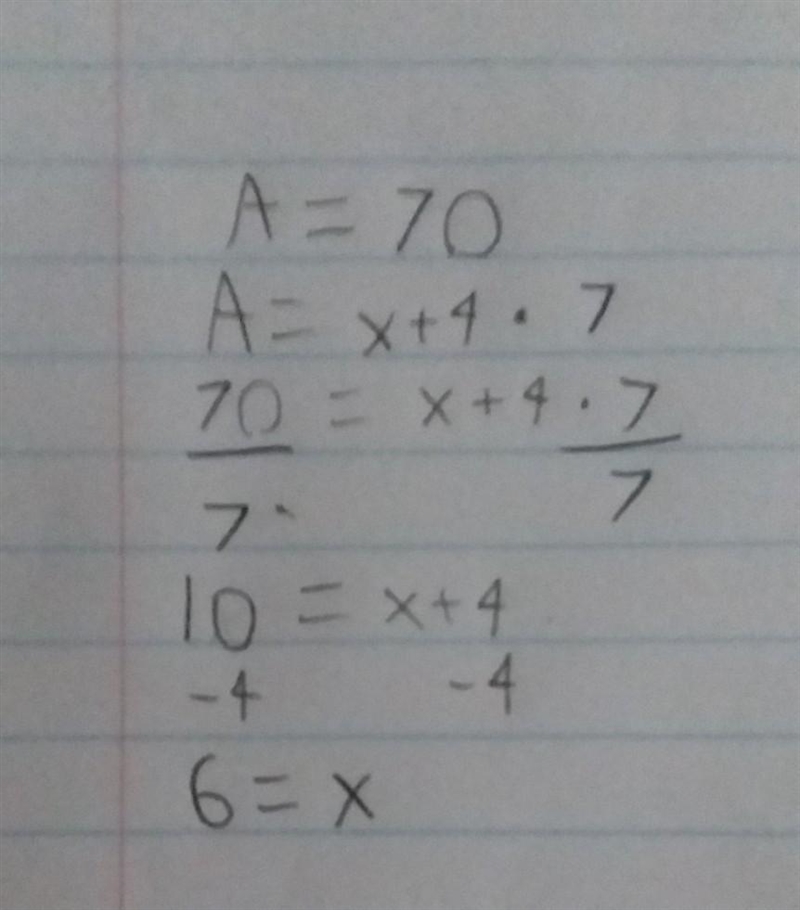 A = 70
A = x + 4 · 7
70 = x + 4 · 7
7 7
10 = x + 4
-4 -4
6 = x